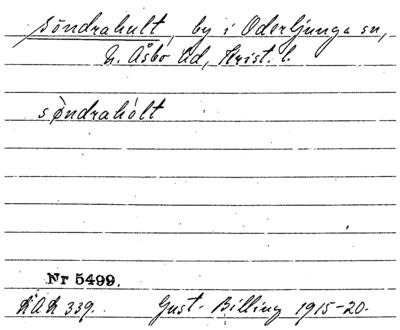 Söndrahult, by i Oderljunga sn,
N. Åsbo hd, Krist. l.
sǿndrahólt
Nr 5499.
339. Gust. Billing 1915-20.